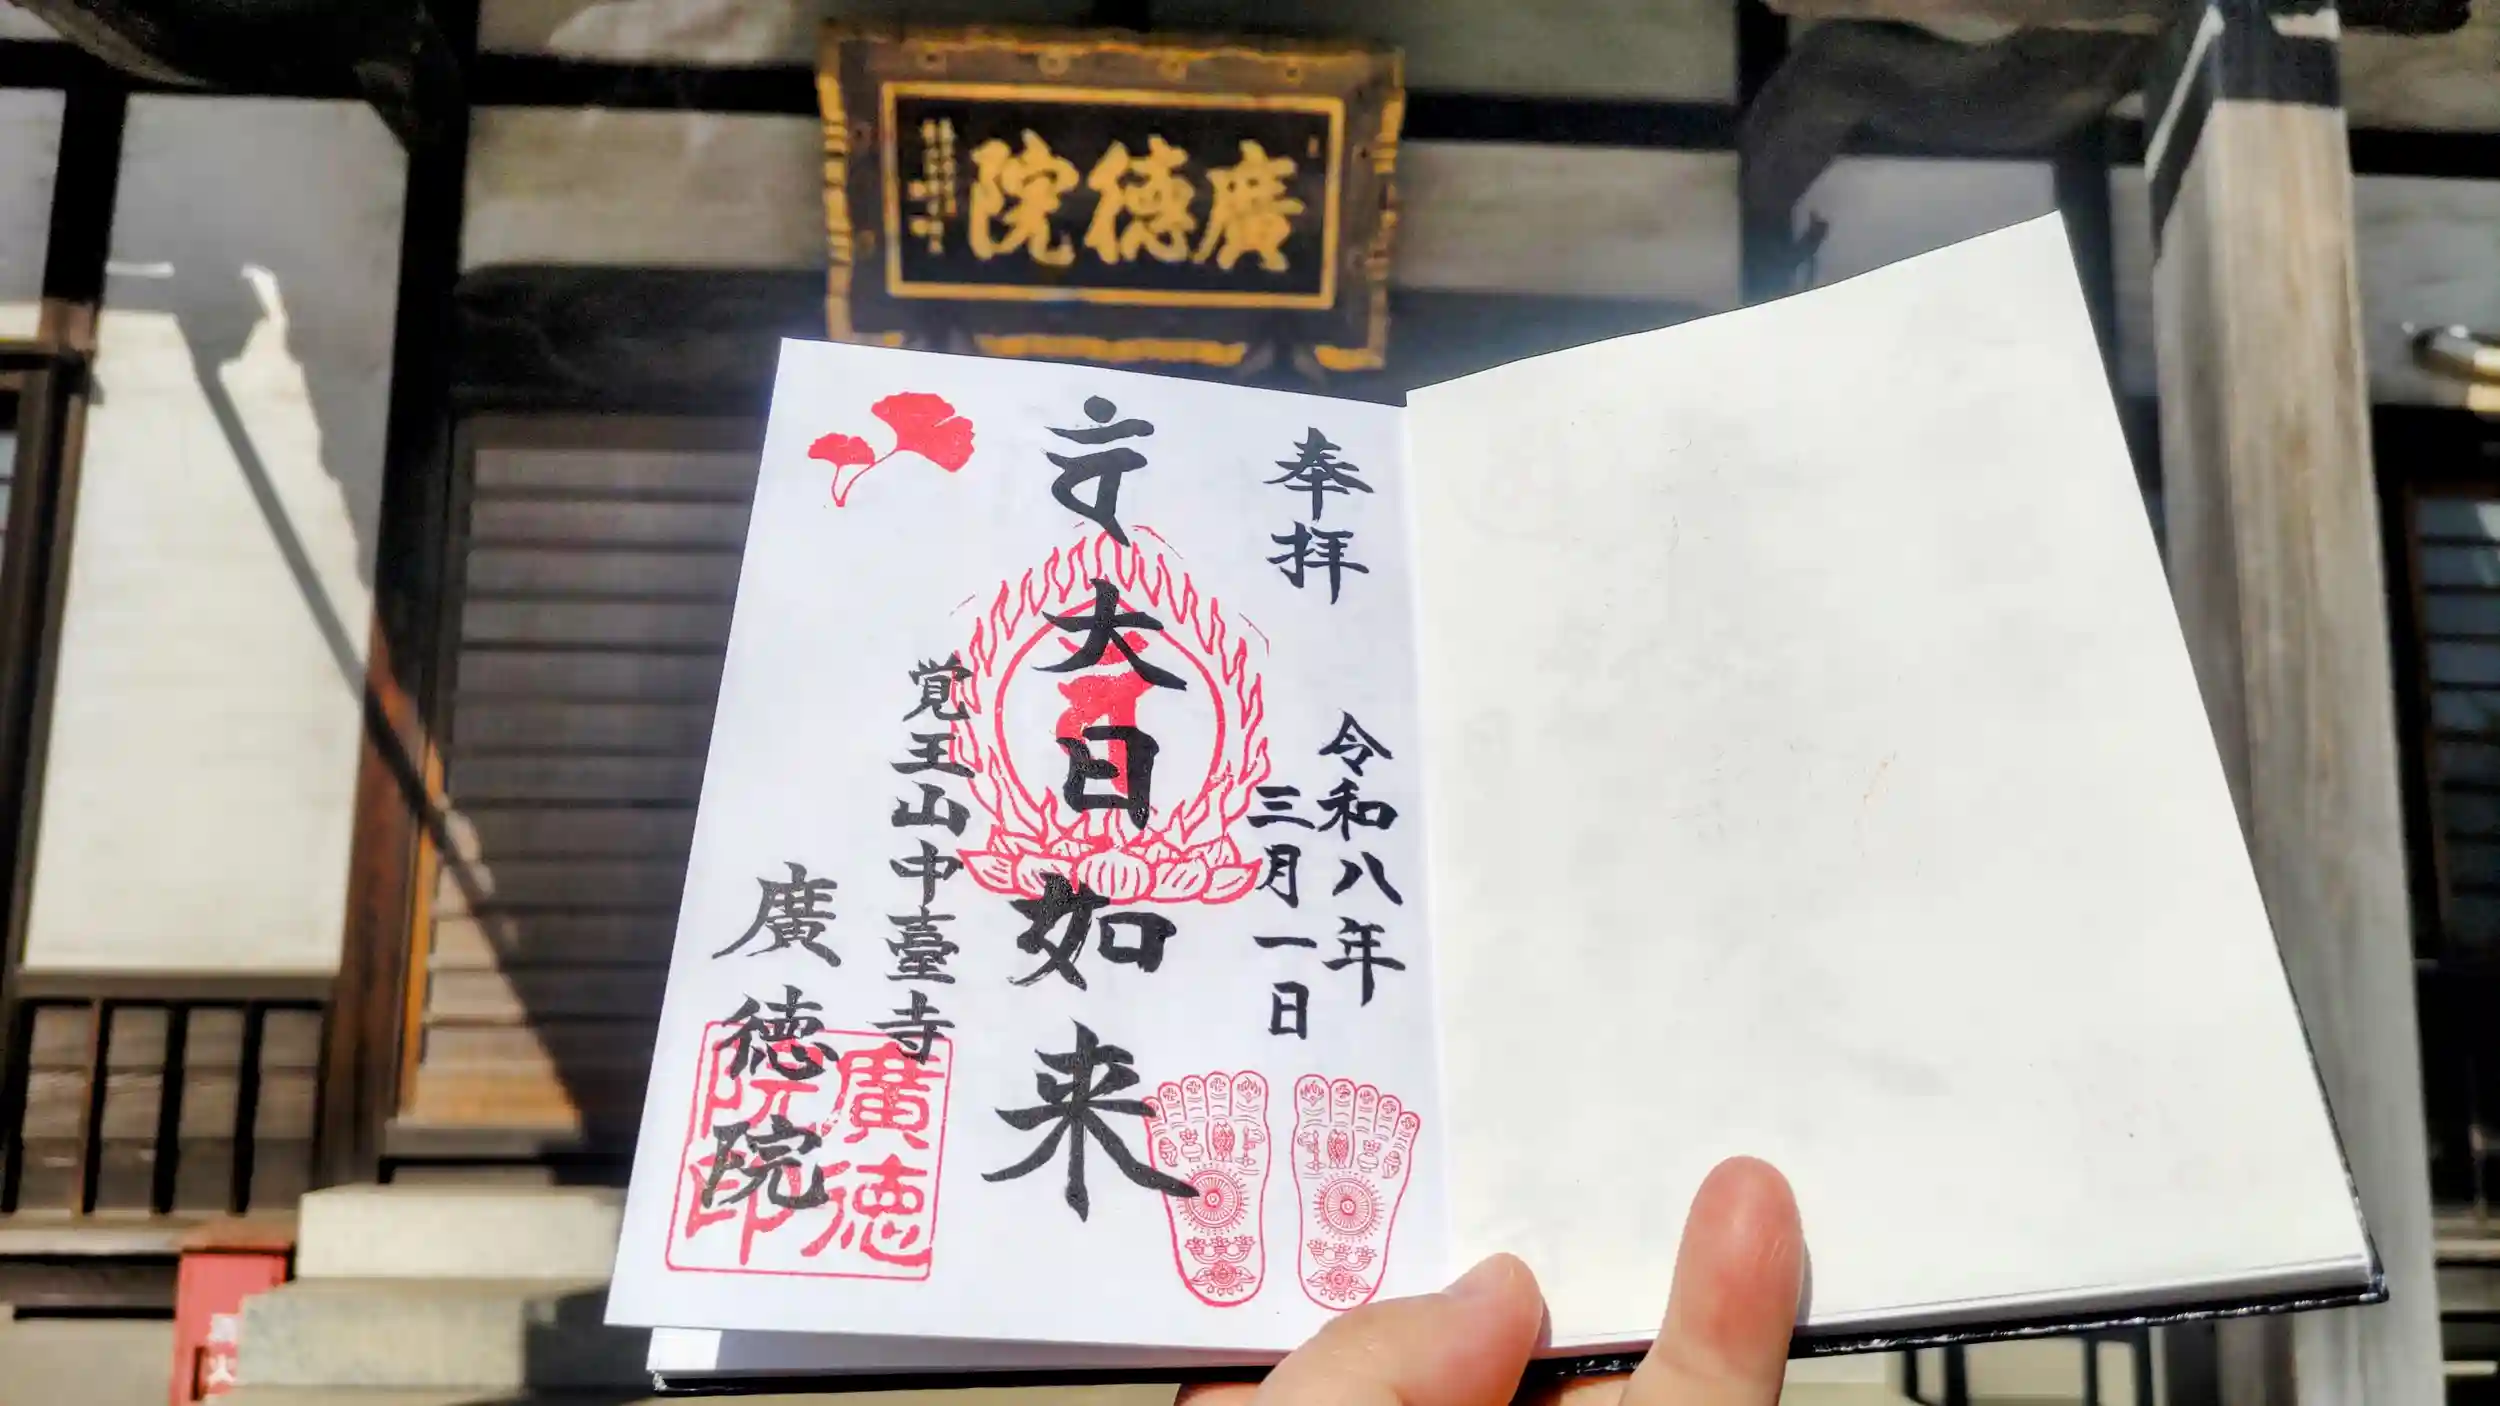 院徳廣
奉拝
令和八年
三月一日
大日如来
覚王山中臺寺
廣徳院
廣徳
院印
消火